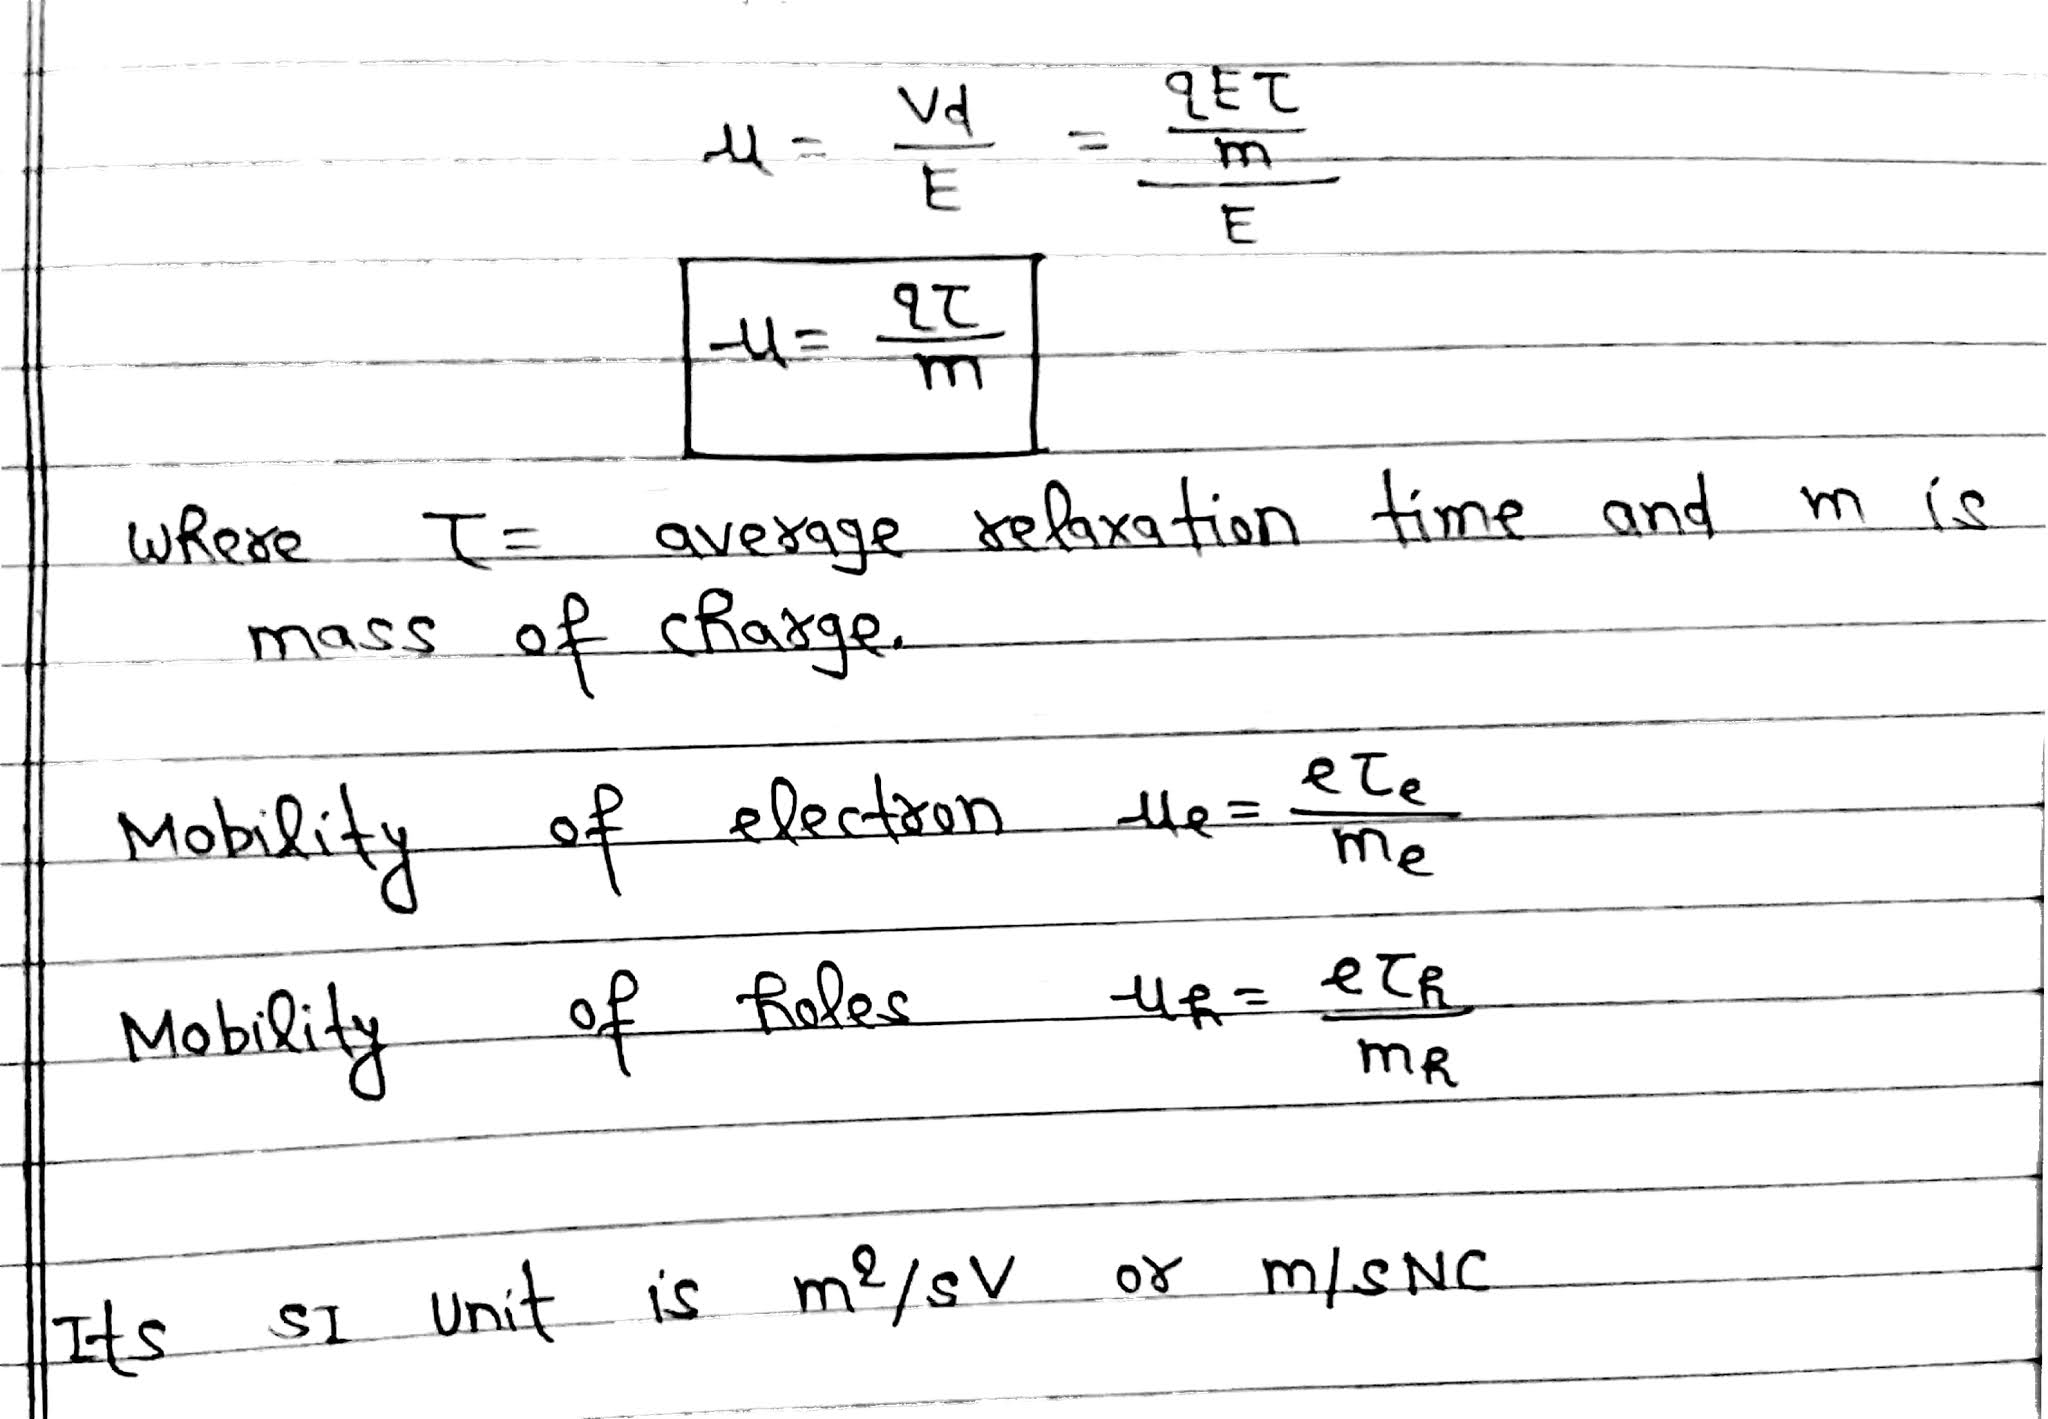 μ = Vd/E = (qEτ/m)/E
μ = qτ/m
where τ = average relaxation time and m is
mass of charge.
Mobility of electron μe = eτe/me
Mobility of holes μh = eτh/mh
Its SI Unit is m²/sV or m/sNC